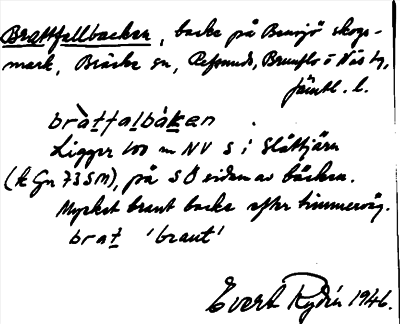 Brattfallbacken, backe på Bensjö skogs-
mark, Bräcke sn, Refsunds, Brunflo o Näs tg,
Jämtl. l.
bràttalbàken
Ligger 100 m NV S i Slåttjärn
(k Gn 73SM), på SÖ sidan av bäcken.
Mycket brant backe efter timmerväg.
brat 'brant'
Evert Rydin 1946.